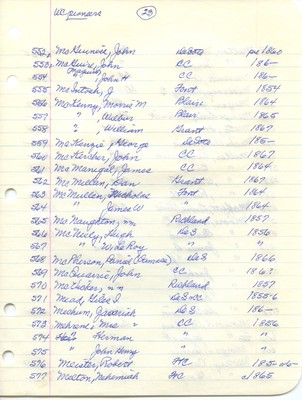 WC pioneers 23
552 McGinnis, John DeSoto pre 1860
553 McGuire, John CC 186-
554 Maguire, John H CC 186-
555 McIntosh, J Font 1854
556 McKenny, Morris M Blaire 1864
557 " Wilbur Blair 1865
558 " William Grant 1867
559 McKenzie, George DeSoto 185-
560 John CC 1867
561 McManigal, James CC 1864
562 McMillan, Dan Grant 1867
563 McMullen, Nicholas Font 1864
564 James W " 1864
565 McNaughton, Richland 1857
566 McNeely, Hugh DeS 1856
567 " W LeRoy " "
568 McPherson, Daniel DeS 1866
569 John CC 186?
570 Richland 1857
571 Mead, Giles I DeS nCC 1855-6
572 Mechum, DeS 186-
573 Mehrens Mrs CC 1856
574 Herman " "
575 " John Henry " "
576 Meister, Robert FtC 185-
577 Melton, Jeremiah FtC c/865